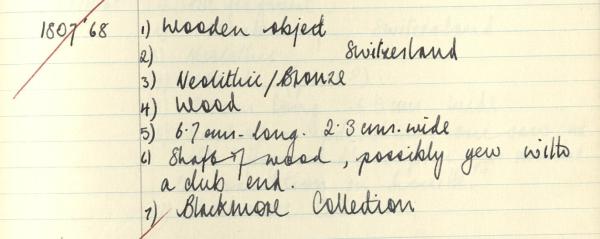 1807'68 1) Wooden object
2) Switzerland
3) Neolithic/Bronze
4) Wood
5) 6.7 cms. long. 2.3 cms. wide
6) Shaft of wood, possibly yew with
a club end.
7) Blackmore Collection